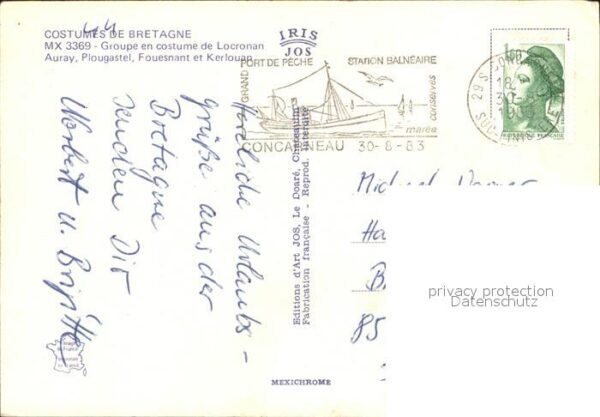 44
COSTUMES DE BRETAGNE
MX 3369 - Groupe en costume de Locronan
Auray, Plougastel, Fouesnant et Kerlouan
IRIS
JOS
GRAND PORT DE PÊCHE
STATION BALNÉAIRE
conserves
marée
CONCARNEAU 30-8-83
29 S
18
30-
Herzliche Urlaubs-
grüße aus der
Bretagne
senden Dir
Norbert u. Brigitte
Editions d'Art JOS, Le Doaré, Châteaulin
Fabrication française - Reprod. interdite
Michael
Ha
B
85
privacy protection
Datenschutz
MEXICHROME